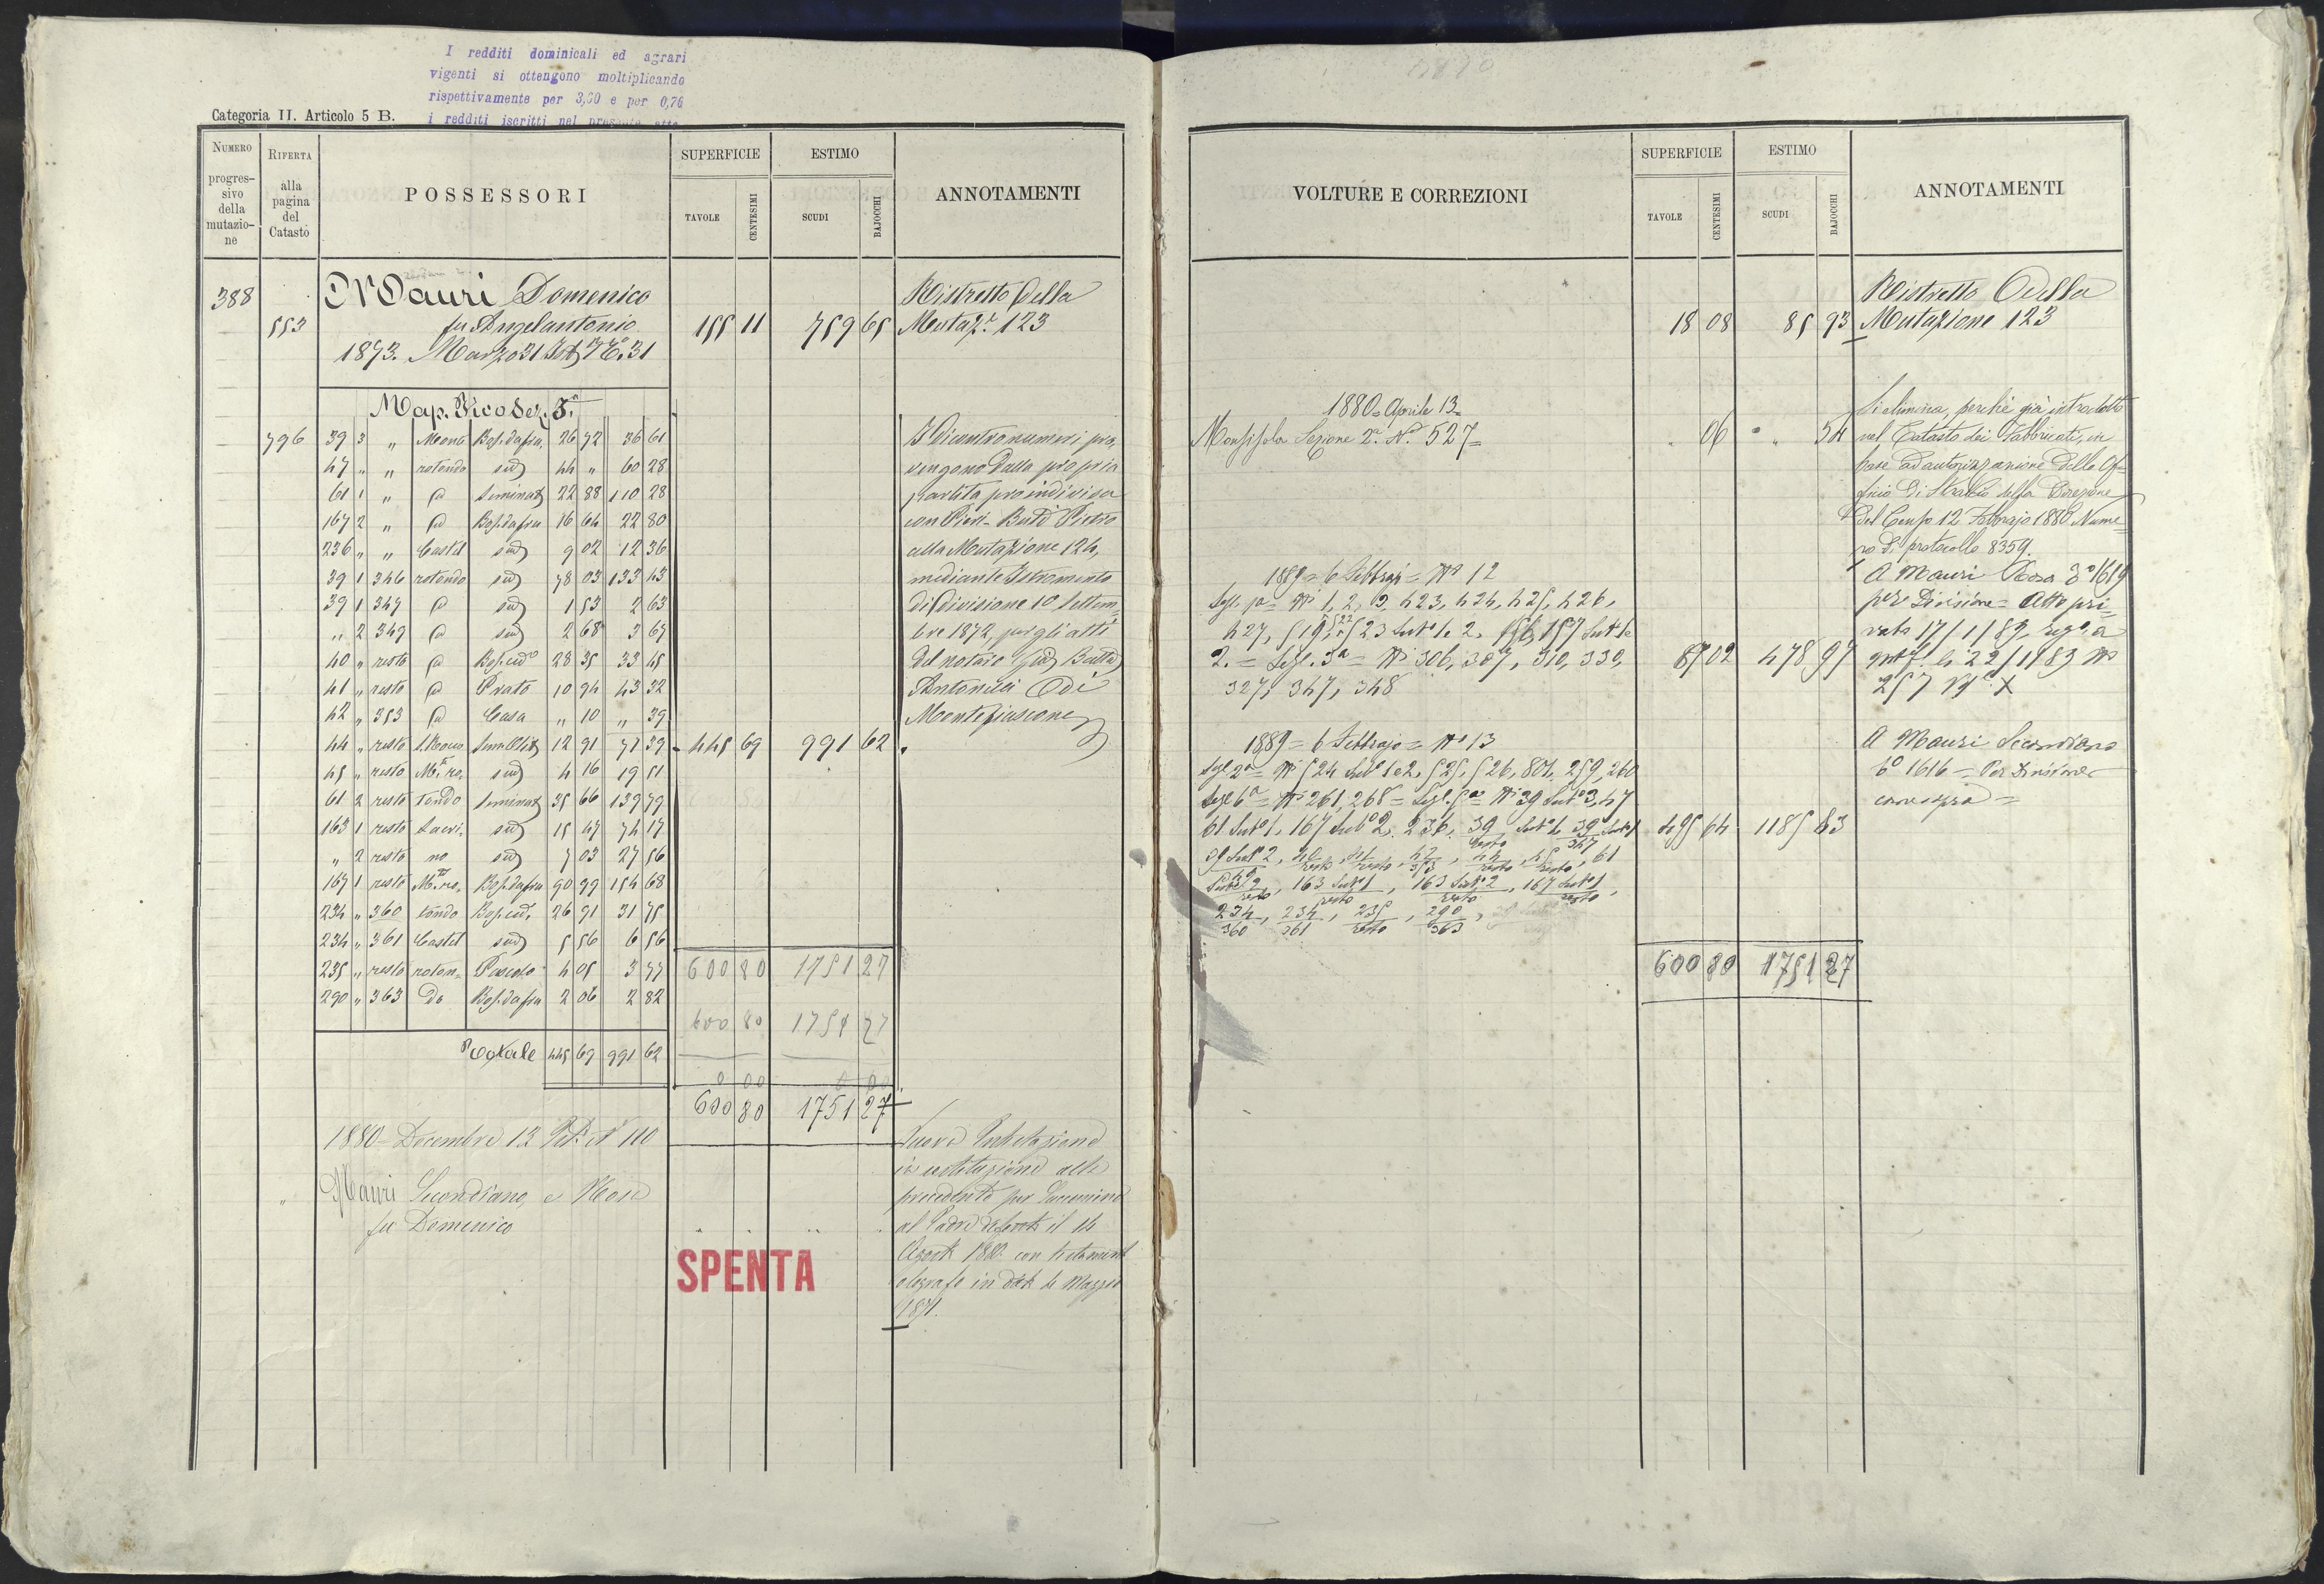 I redditi dominicali ed agrari
vigenti si ottengono moltiplicando
rispettivamente per 3,00 e per 0,76
i redditi iscritti nel presente atto
Categoria II. Articolo 5 B.
NUMERO progressivo della mutazione
RIFERTA alla pagina del Catasto
POSSESSORI
SUPERFICIE
TAVOLE
CENTESIMI
ESTIMO
SCUDI
BAJOCCHI
ANNOTAMENTI
388
553
Mauri Domenico
fu Angelantonio
155 11 759 65
Ristretto della
Mutaz.e 123
1873. Marzo 31
796
39 3 " Monte Bos. da fru. 26 72 36 61
47 " " rotondo sud 44 " 60 28
61 1 " Seminat 22 88 110 28
167 2 " Bos. da fru 16 64 22 80
236 " " Castel sud 9 02 12 36
39 1 346 rotondo sud 78 03 133 43
39 1 347 sud 1 53 2 63
" 2 349 sud 2 68 3 67
40 " resto 28 35 33 45
41 " resto Prato 10 94 43 32
42 " 353 Casa " 10 " 39
44 " resto S. Rocco 12 91 71 39
45 " resto sud 4 16 19 51
61 2 resto tondo Seminat 35 66 139 79
163 1 resto sud 15 47 74 17
" 2 resto no sud 7 03 27 56
167 1 resto Bos. da fru 90 99 154 68
234 " 360 tondo 26 91 31 75
234 " 361 Castel sud 5 56 6 56
235 " resto roton- Pascolo 4 05 3 77
290 " 363 do Bos. da fru 2 06 2 82
Totale 445 69 991 62
I dicontro numeri pro-
vengono dalla propria
partita proindivisa
con Pieri-Buti Pietro
alla Mutazione 124,
mediante Istromento
di divisione 10 Settem-
bre 1872, per gli atti
del notaro
Antonicci di
Montefiascone
445 69 991 62
600 80 1751 27
600 80 1751 27
0 00 0 00
600 80 1751 27
1880 - Decembre 13 N 110
Mauri Secondiano, e Rosa
fu Domenico
Nuova Intestazione
in sostituzione alla
precedente per Successione
al Padre defonto il 14
Agosto 1880 con testamento
olografo in data Maggio
1871.
SPENTA
VOLTURE E CORREZIONI
SUPERFICIE
TAVOLE
CENTESIMI
ESTIMO
SCUDI
BAJOCCHI
ANNOTAMENTI
18 08 85 93
Ristretto della
Mutazione 123
1880 = Aprile 13 =
Sezione 2a N° 527 =
" 06 " " 54
Si elimina, perchè già introdotto
nel Catasto dei Fabbricati, in
base ad autorizzazione dello Of-
ficio di Stralcio della Direzione
del Censo 12 Febbrajo 1880 Nume-
ro di protocollo 8359.
1889 = 6 Febbrajo = N° 12
1, 2, 3, 423, 424, 425, 426,
2. = Sez. 3a = Ni 306, 307, 310, 339,
327, 347, 348
87 02 478 97
A Mauri Rosa 3° 1619
per Divisione = Atto pri-
vato 17/1/89
257
1889 = 6 Febbrajo = N° 13
Sez. 2a = Ni 524 Sub° 1 e 2, 525, 526, 801, 259, 260
Sez. 6a = Ni 261, 268 = Sez. 5a = Ni 39 Sub° 3, 47
61 Sub° 1, 167 Sub° 2, 236, 39 Sub° 1, 39 Sub° 1
163 Sub° 1, 163 Sub° 2, 167 Sub° 1
234, 234, 235, 290
360 361 resto 363
495 64 1185 83
A Mauri Secondiano
6° 1616 = Per Divisione
come sopra =
600 80 1751 27